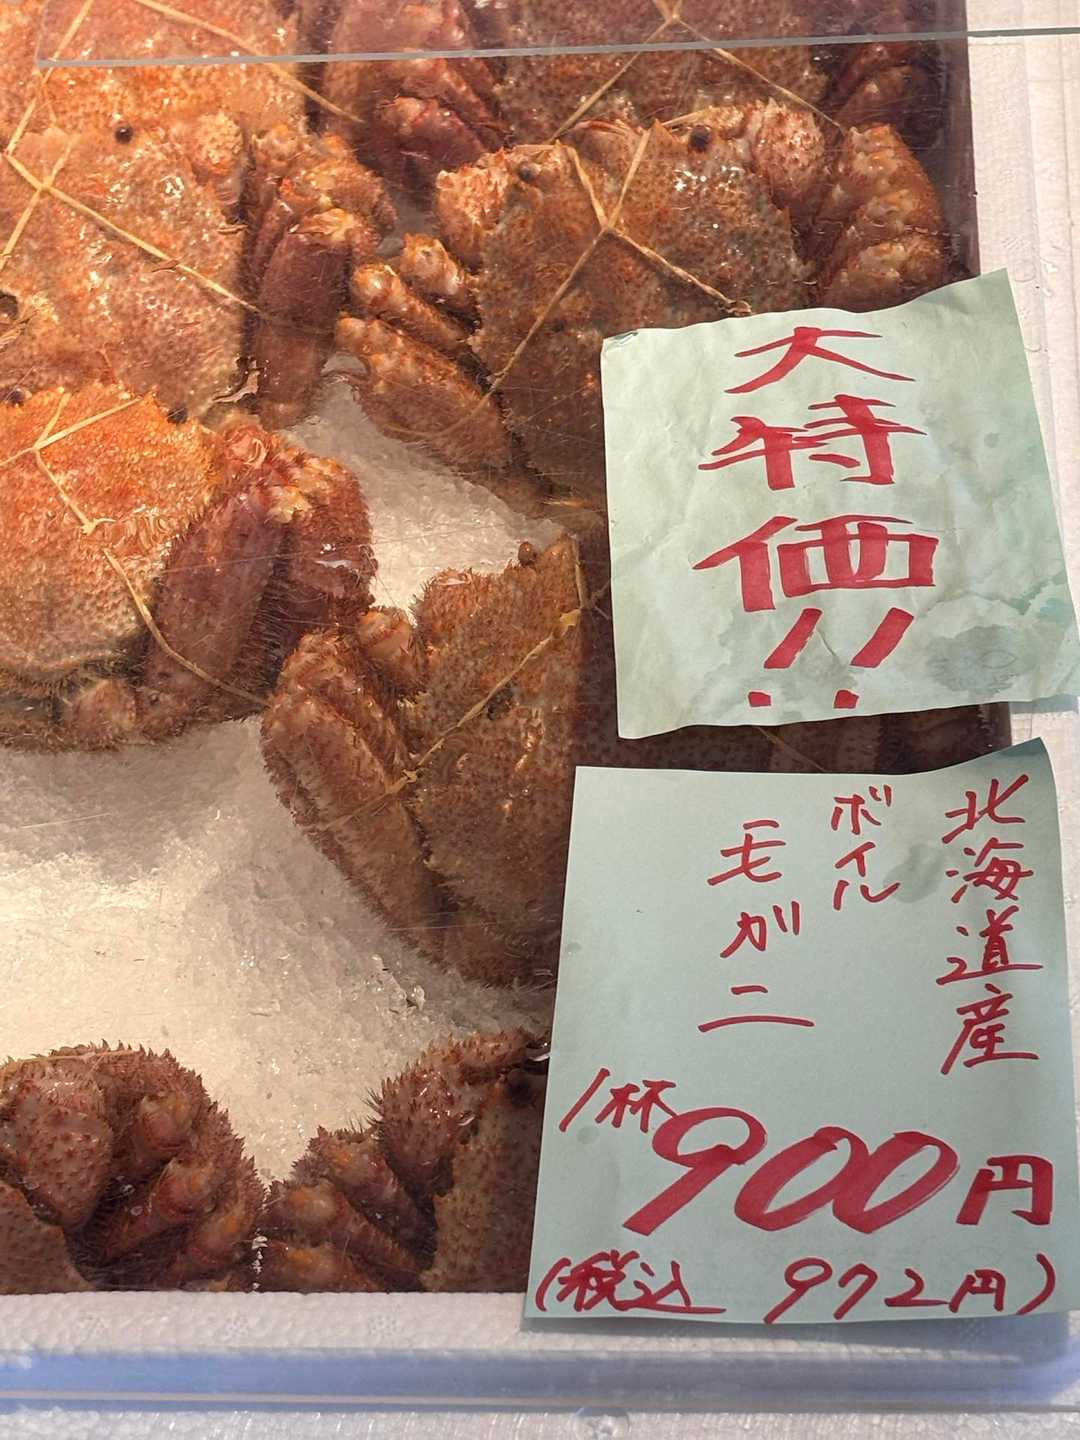 大特価!!
北海道産
ボイル
毛ガニ
1杯 900円
(税込 972円)